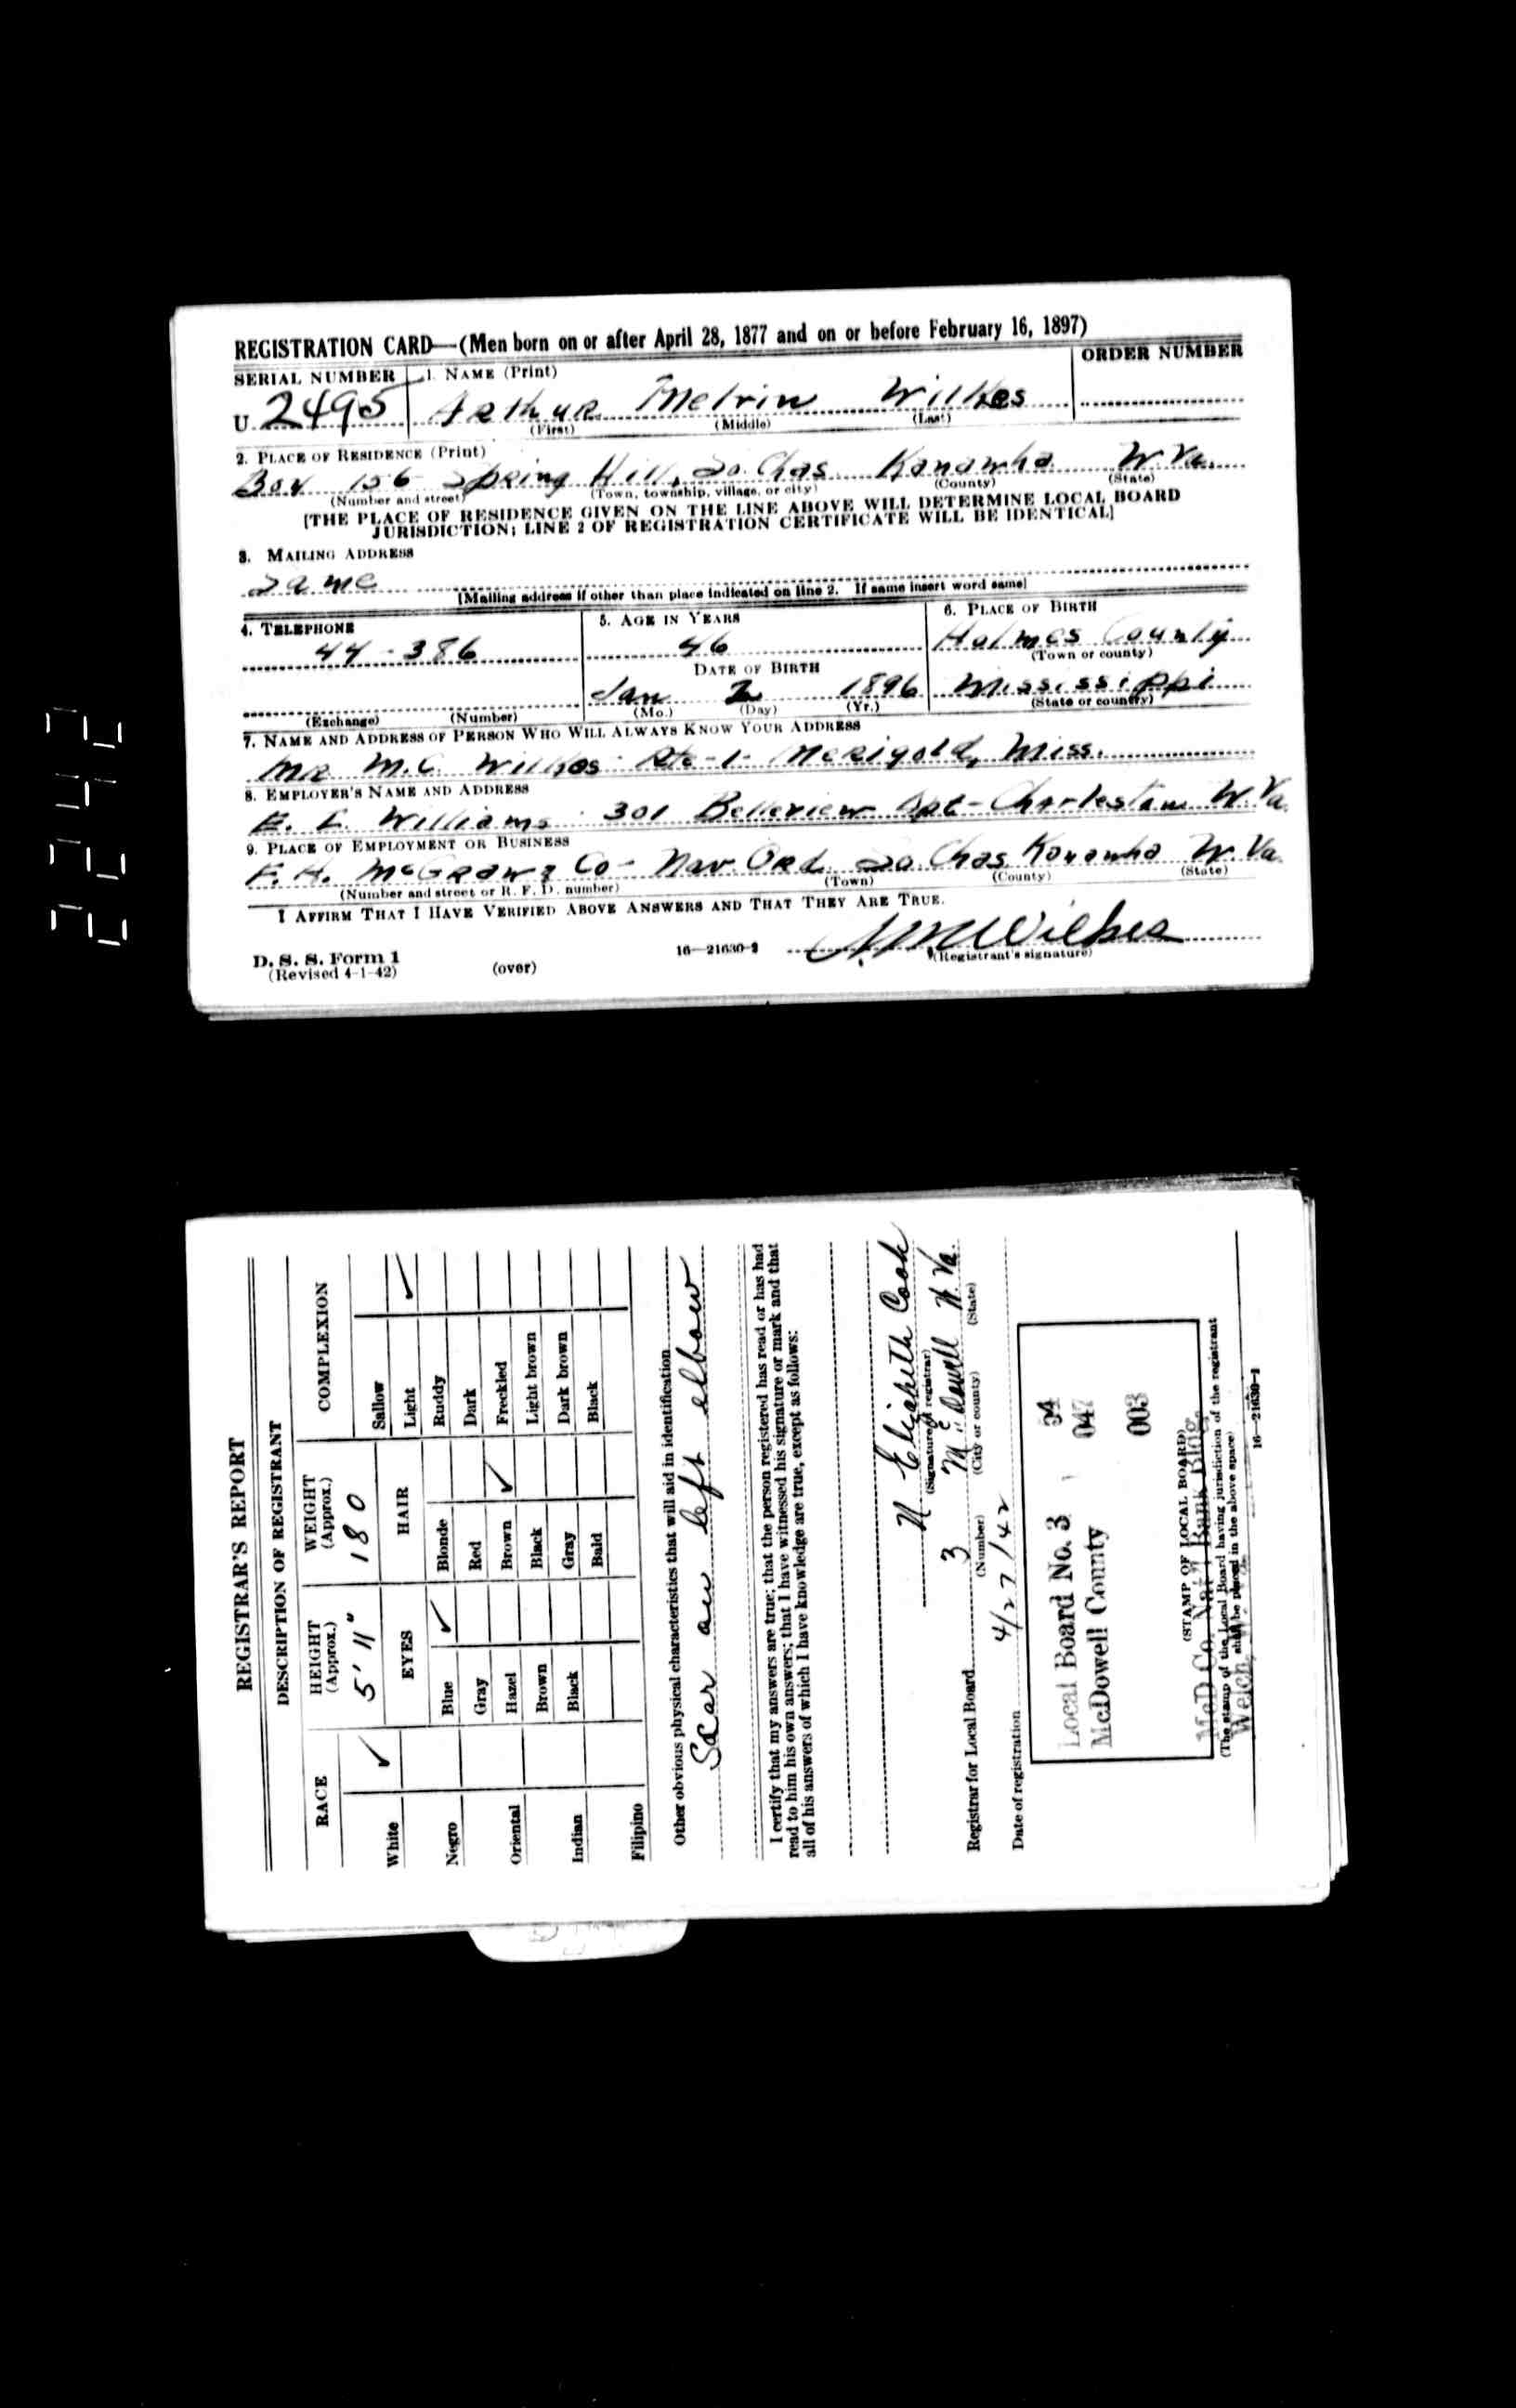 2242
REGISTRATION CARD—(Men born on or after April 28, 1877 and on or before February 16, 1897)
SERIAL NUMBER 1. NAME (Print) ORDER NUMBER
U 2495 Arthur Melvin Wilkes
(First) (Middle) (Last)
2. PLACE OF RESIDENCE (Print)
Box 156 Spring Hill, So. Chas. Kanawha W. Va.
(Number and street) (Town, township, village, or city) (County) (State)
[THE PLACE OF RESIDENCE GIVEN ON THE LINE ABOVE WILL DETERMINE LOCAL BOARD
JURISDICTION; LINE 2 OF REGISTRATION CERTIFICATE WILL BE IDENTICAL]
3. MAILING ADDRESS
Same
[Mailing address if other than place indicated on line 2. If same insert word same]
4. TELEPHONE 5. AGE IN YEARS 6. PLACE OF BIRTH
44-386 46 Holmes County
DATE OF BIRTH (Town or county)
Jan 2 1896 Mississippi
(Exchange) (Number) (Mo.) (Day) (Yr.) (State or country)
7. NAME AND ADDRESS OF PERSON WHO WILL ALWAYS KNOW YOUR ADDRESS
MR M.C. Wilkes Rte-1- Merigold, Miss.
8. EMPLOYER'S NAME AND ADDRESS
E. L. Williams 301 Belleview Apt - Charleston W. Va.
9. PLACE OF EMPLOYMENT OR BUSINESS
F. H. McGraw & Co - Nav. Ord. So. Chas. Kanawha W. Va.
(Number and street or R. F. D. number) (Town) (County) (State)
I AFFIRM THAT I HAVE VERIFIED ABOVE ANSWERS AND THAT THEY ARE TRUE.
A M Wilkes
D. S. S. Form 1
(Revised 4-1-42) (over) 16—21630-2 (Registrant's signature)
REGISTRAR'S REPORT
DESCRIPTION OF REGISTRANT
RACE HEIGHT (Approx.) WEIGHT (Approx.) COMPLEXION
5' 11" 180
EYES HAIR
White ✓ Blue ✓ Blonde Sallow
Negro Gray Red Light ✓
Oriental Hazel Brown ✓ Ruddy
Indian Brown Black Dark
Filipino Black Gray Freckled
Bald Light brown
Dark brown
Black
Other obvious physical characteristics that will aid in identification
Scar on left elbow
I certify that my answers are true; that the person registered has read or has had
read to him his own answers; that I have witnessed his signature or mark and that
all of his answers of which I have knowledge are true, except as follows:
N Elizabeth Cook
(Signature of registrar)
Registrar for Local Board 3 McDowell W. Va.
(Number) (City or county) (State)
Date of registration 4/27/42
Local Board No. 3 54
McDowell County 047
003
(STAMP OF LOCAL BOARD)
McD. Co. Nat'l Bank Bldg.
(The stamp of the Local Board having jurisdiction of the registrant
shall be placed in the above space)
Welch,
16—21630-2